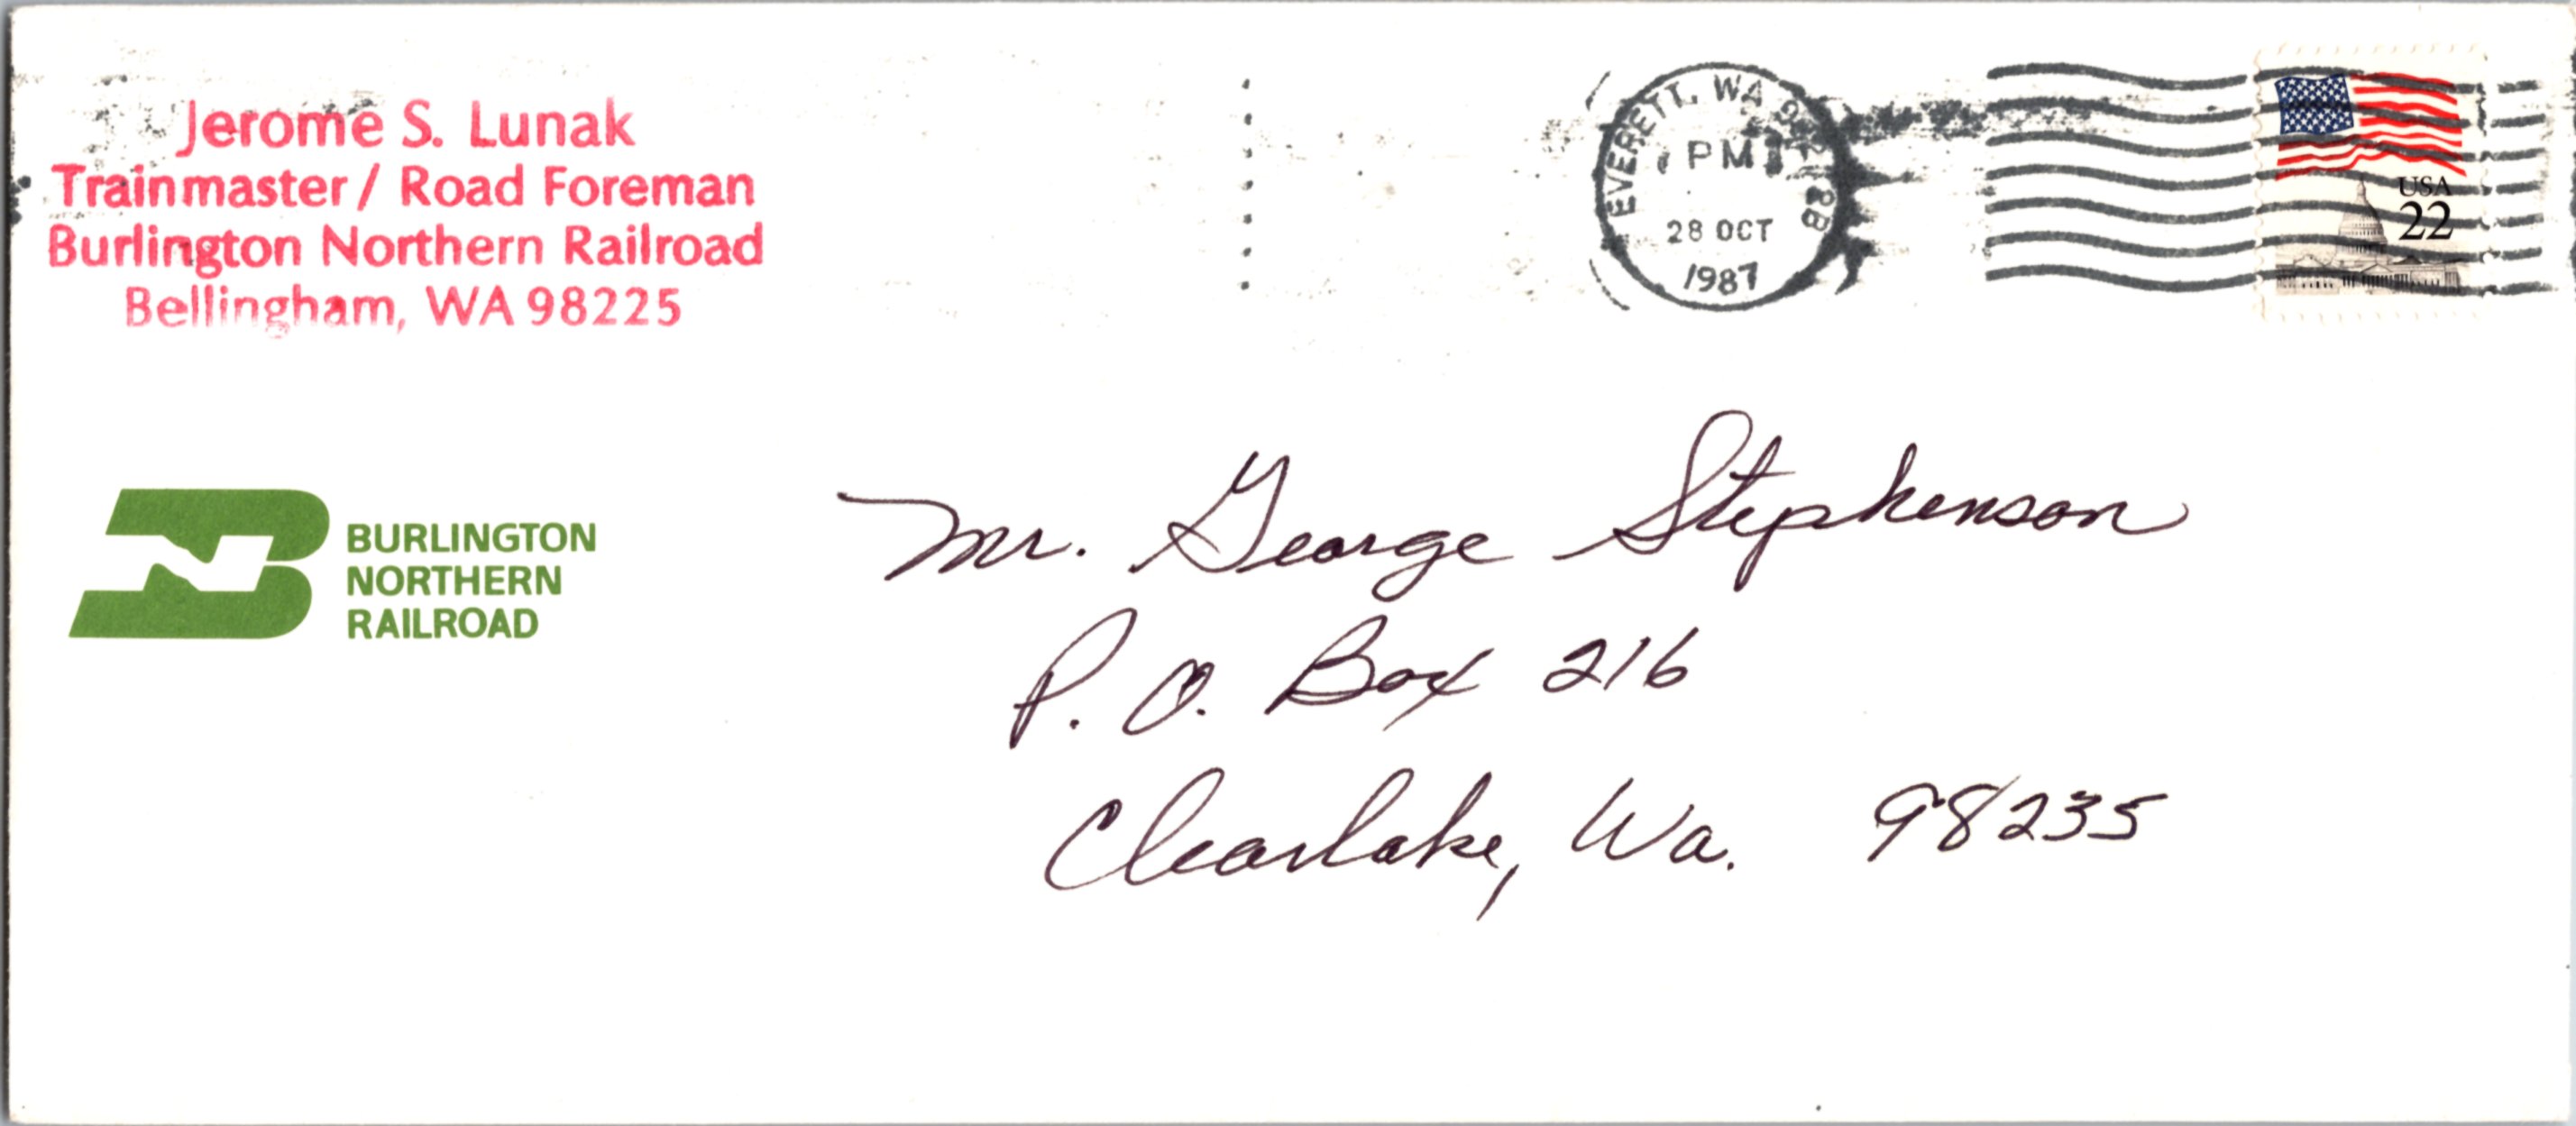 Jerome S. Lunak
Trainmaster / Road Foreman
Burlington Northern Railroad
Bellingham, WA 98225
EVERETT, WA
PM
28 OCT
1987
USA
22
BURLINGTON
NORTHERN
RAILROAD
Mr. George Stephenson
P. O. Box 216
Clearlake, Wa. 98235